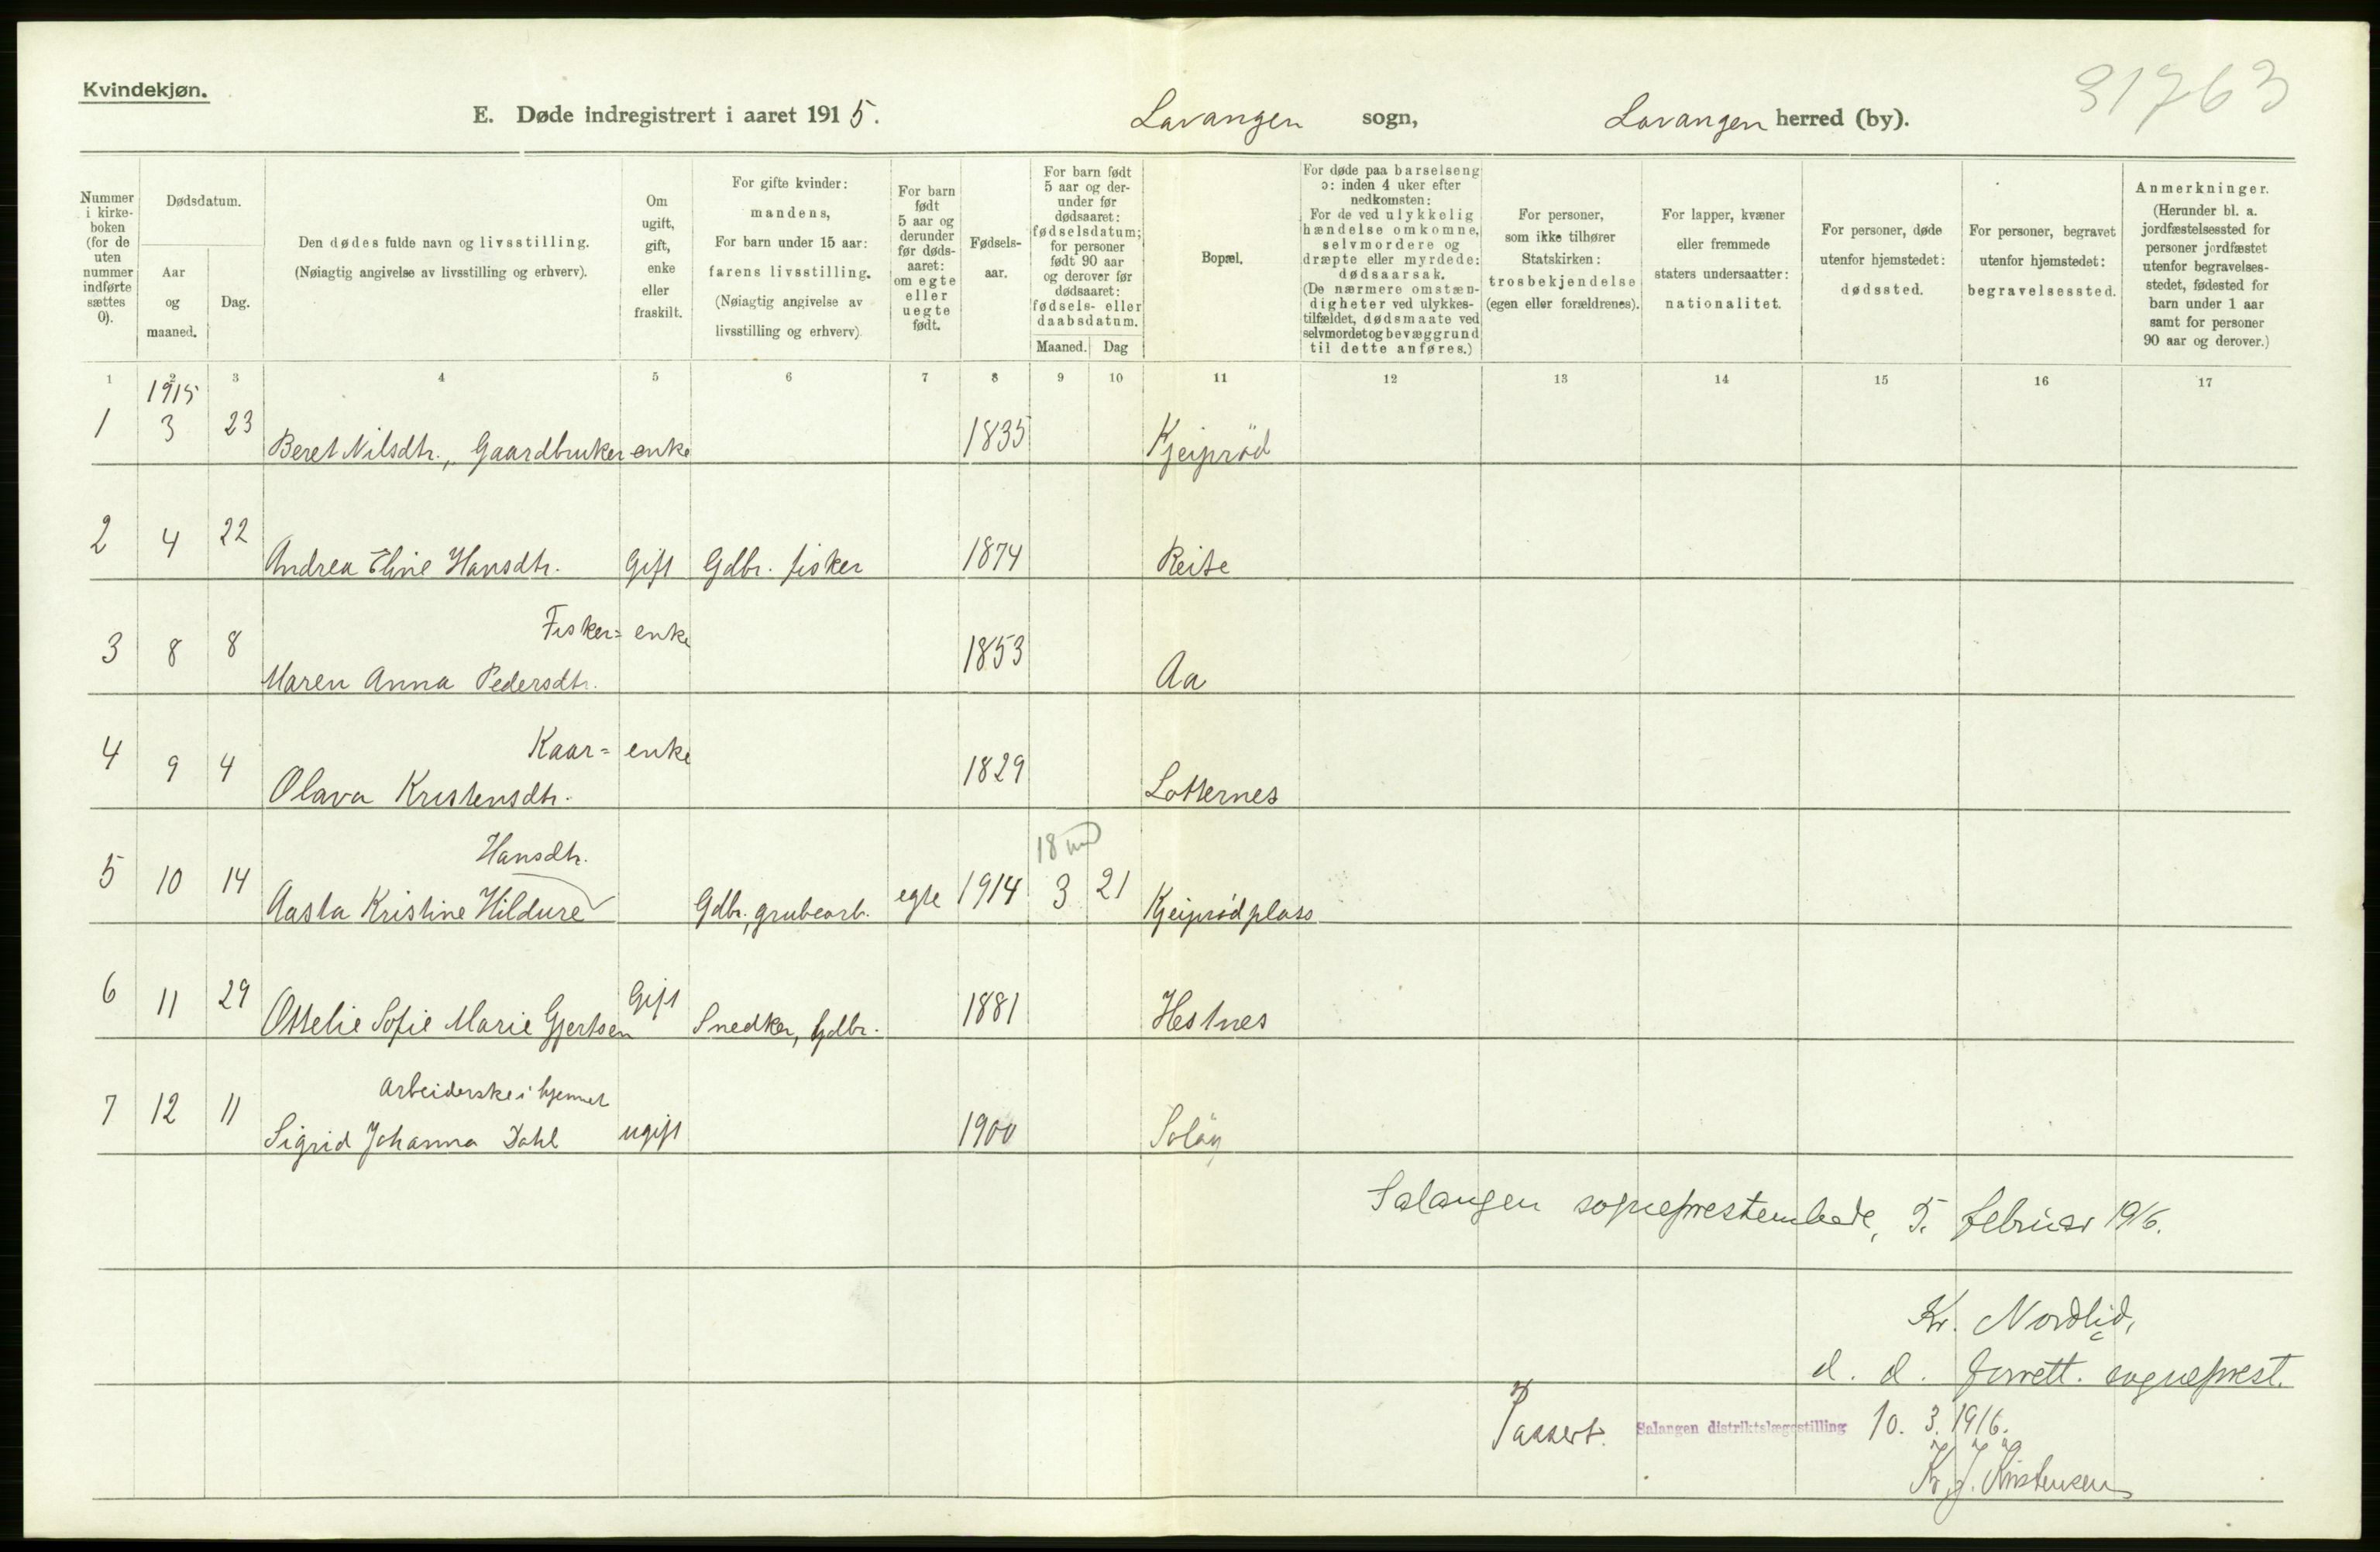 Kvindekjøn.
31763
E. Døde indregistrert i aaret 1915. Lavangen sogn, Lavangen herred (by).
Nummer i kirke- boken (for de uten nummer indførte sættes 0).
Dødsdatum.
Aar og maaned.
Dag.
Den dødes fulde navn og livsstilling. (Nøiagtig angivelse av livsstilling og erhverv).
Om ugift, gift, enke eller fraskilt.
For gifte kvinder: mandens, For barn under 15 aar: farens livsstilling. (Nøiagtig angivelse av livsstilling og erhverv)
For barn født 5 aar og derunder før døds- aaret: om egte eller uegte født.
Fødsels- aar.
For barn født 5 aar og der- under før dødsaaret: fødselsdatum; for personer født 90 aar og derover før dødsaaret: fødsels- eller daabsdatum.
Maaned. Dag
Bopæl.
For døde paa barselseng ɔ: inden 4 uker efter nedkomsten: For de ved ulykkelig hændelse omkomne, selvmordere og dræpte eller myrdede: dødsaarsak. (De nærmere omstæn- digheter ved ulykkes- tilfældet, dødsmaate ved selvmordet og bevæggrund til dette anføres.)
For personer, som ikke tilhører Statskirken: trosbekjendelse (egen eller forældrenes).
For lapper, kvæner eller fremmede staters undersaatter: nationalitet.
For personer, døde utenfor hjemstedet: dødssted.
For personer, begravet utenfor hjemstedet: begravelsessted.
Anmerkninger. (Herunder bl. a. jordfæstelsessted for personer jordfæstet utenfor begravelses- stedet, fødested for barn under 1 aar samt for personer 90 aar og derover.)
1 2 3 4 5 6 7 8 9 10 11 12 13 14 15 16 17
1915
1 3 23 Beret Nilsdtr., Gaardbruker enke 1835 Kjeiprød
2 4 22 Andrea Eline Hansdtr. Gift Gdbr. fisker 1874 Reite
Fisker= enke
3 8 8 Maren Anna Pedersdtr. 1853 Aa
Kaar= enke
4 9 4 Olava Kristensdtr. 1829 Lotternes
Hansdtr. 18 md
5 10 14 Aasta Kristine Hildure Gdbr., grubearb. egte 1914 3 21 Kjeiprødplass
6 11 29 Ottelie Sofie Marie Gjertsen Gift Snedker, Gdbr. 1881 Hestnes
Arbeiderske i hjemmet
7 12 11 Sigrid Johanna Dahl ugift 1900 Soløy
Salangen sogneprestembede, 5. februar 1916.
Kr. Nordlid,
d. d. forrett. sogneprest.
Passert. Salangen distriktslægestilling 10. 3. 1916.
Kr. J. Kristensen